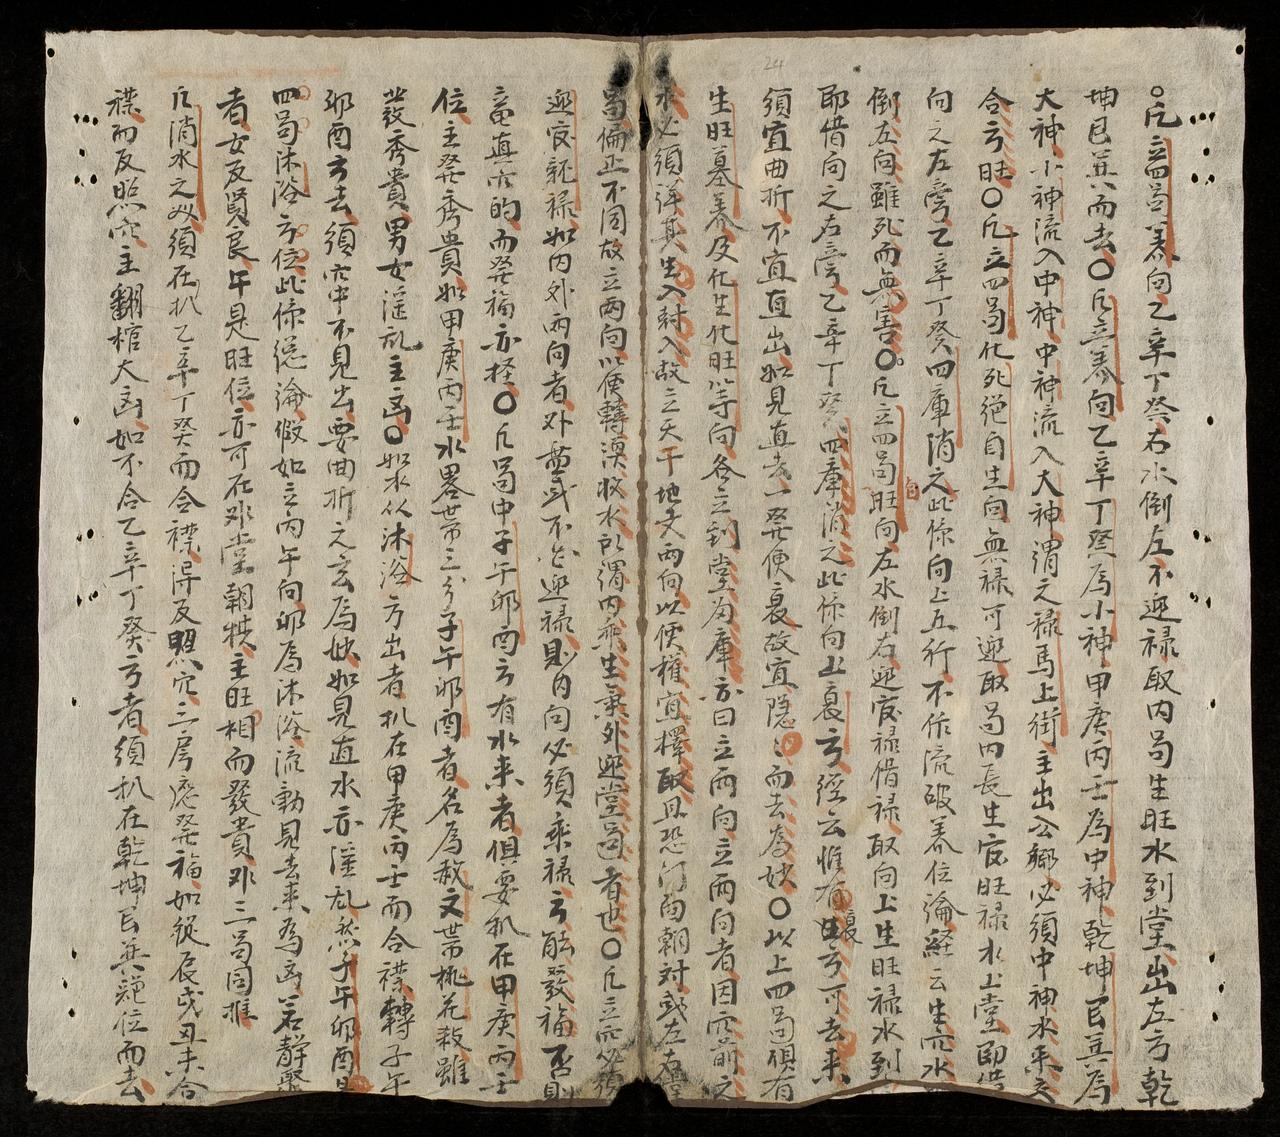 ○凡立四局养向乙辛丁癸右水倒左不迎禄取内局生旺水到堂出左方乾
坤艮巽而去○凡立养向乙辛丁癸為小神甲庚丙壬為中神乾坤艮巽為
大神小神流入中神中神流入大神謂之禄馬上街主出公卿必須中神水来交
合方旺○凡立四局化死絕自生向無禄可迎取局内長生官旺禄水上堂即借
向之左旁乙辛丁癸四庫消之此係向上五行不作流破养位論経云生向水
倒左向雖死而無害○凡立四局旺向左水倒右迎官禄借禄取向上生旺禄水到
耶借向之右旁乙辛丁癸四庫消之此係向上衰方経云惟有衰方可去来
須宜曲折不宜直出如見直去一発便衰故宜隱隱而去為妙○以上四局俱有
生旺墓养及化生化旺等向各立到堂為庫亦曰立两向立两向者因穴前之
水必須詳其生入尅入故立天干地支两向以便権宜擇取且恐门向朝対或左右堂
局偏正不同故立两向以便轉湊收水所謂内乘生氣外迎堂局者也○凡立穴必須
迎官就禄如内外两向者外盤或不迎禄則内向必須乘禄方能發福否則
竜真穴的而発福亦輕○凡局中子午卯酉方有水来者俱要扒在甲庚丙壬
位主発秀貴如甲庚丙壬水畧带三分子午卯酉者名為赦文带桃花殺雖
發秀貴男女淫乱主凶○如水从沐浴方出者扒在甲庚丙壬而合襟轉子午
卯酉方去須穴中不見出要曲折之玄為妙如見直水亦淫乱然子午卯酉是
四局沐浴方位此係總論假如立丙午向卯為沐浴流動見去来為凶若靜聚
者女反賢良午是旺位亦可在外堂朝拱主旺相而發貴外三局同推
凡消水之双須在扒乙辛丁癸而合襟得反照穴三房応発福如從辰戌丑未合
襟而反照穴主翻棺大凶如不合乙辛丁癸方者須扒在乾坤艮巽絕位而去